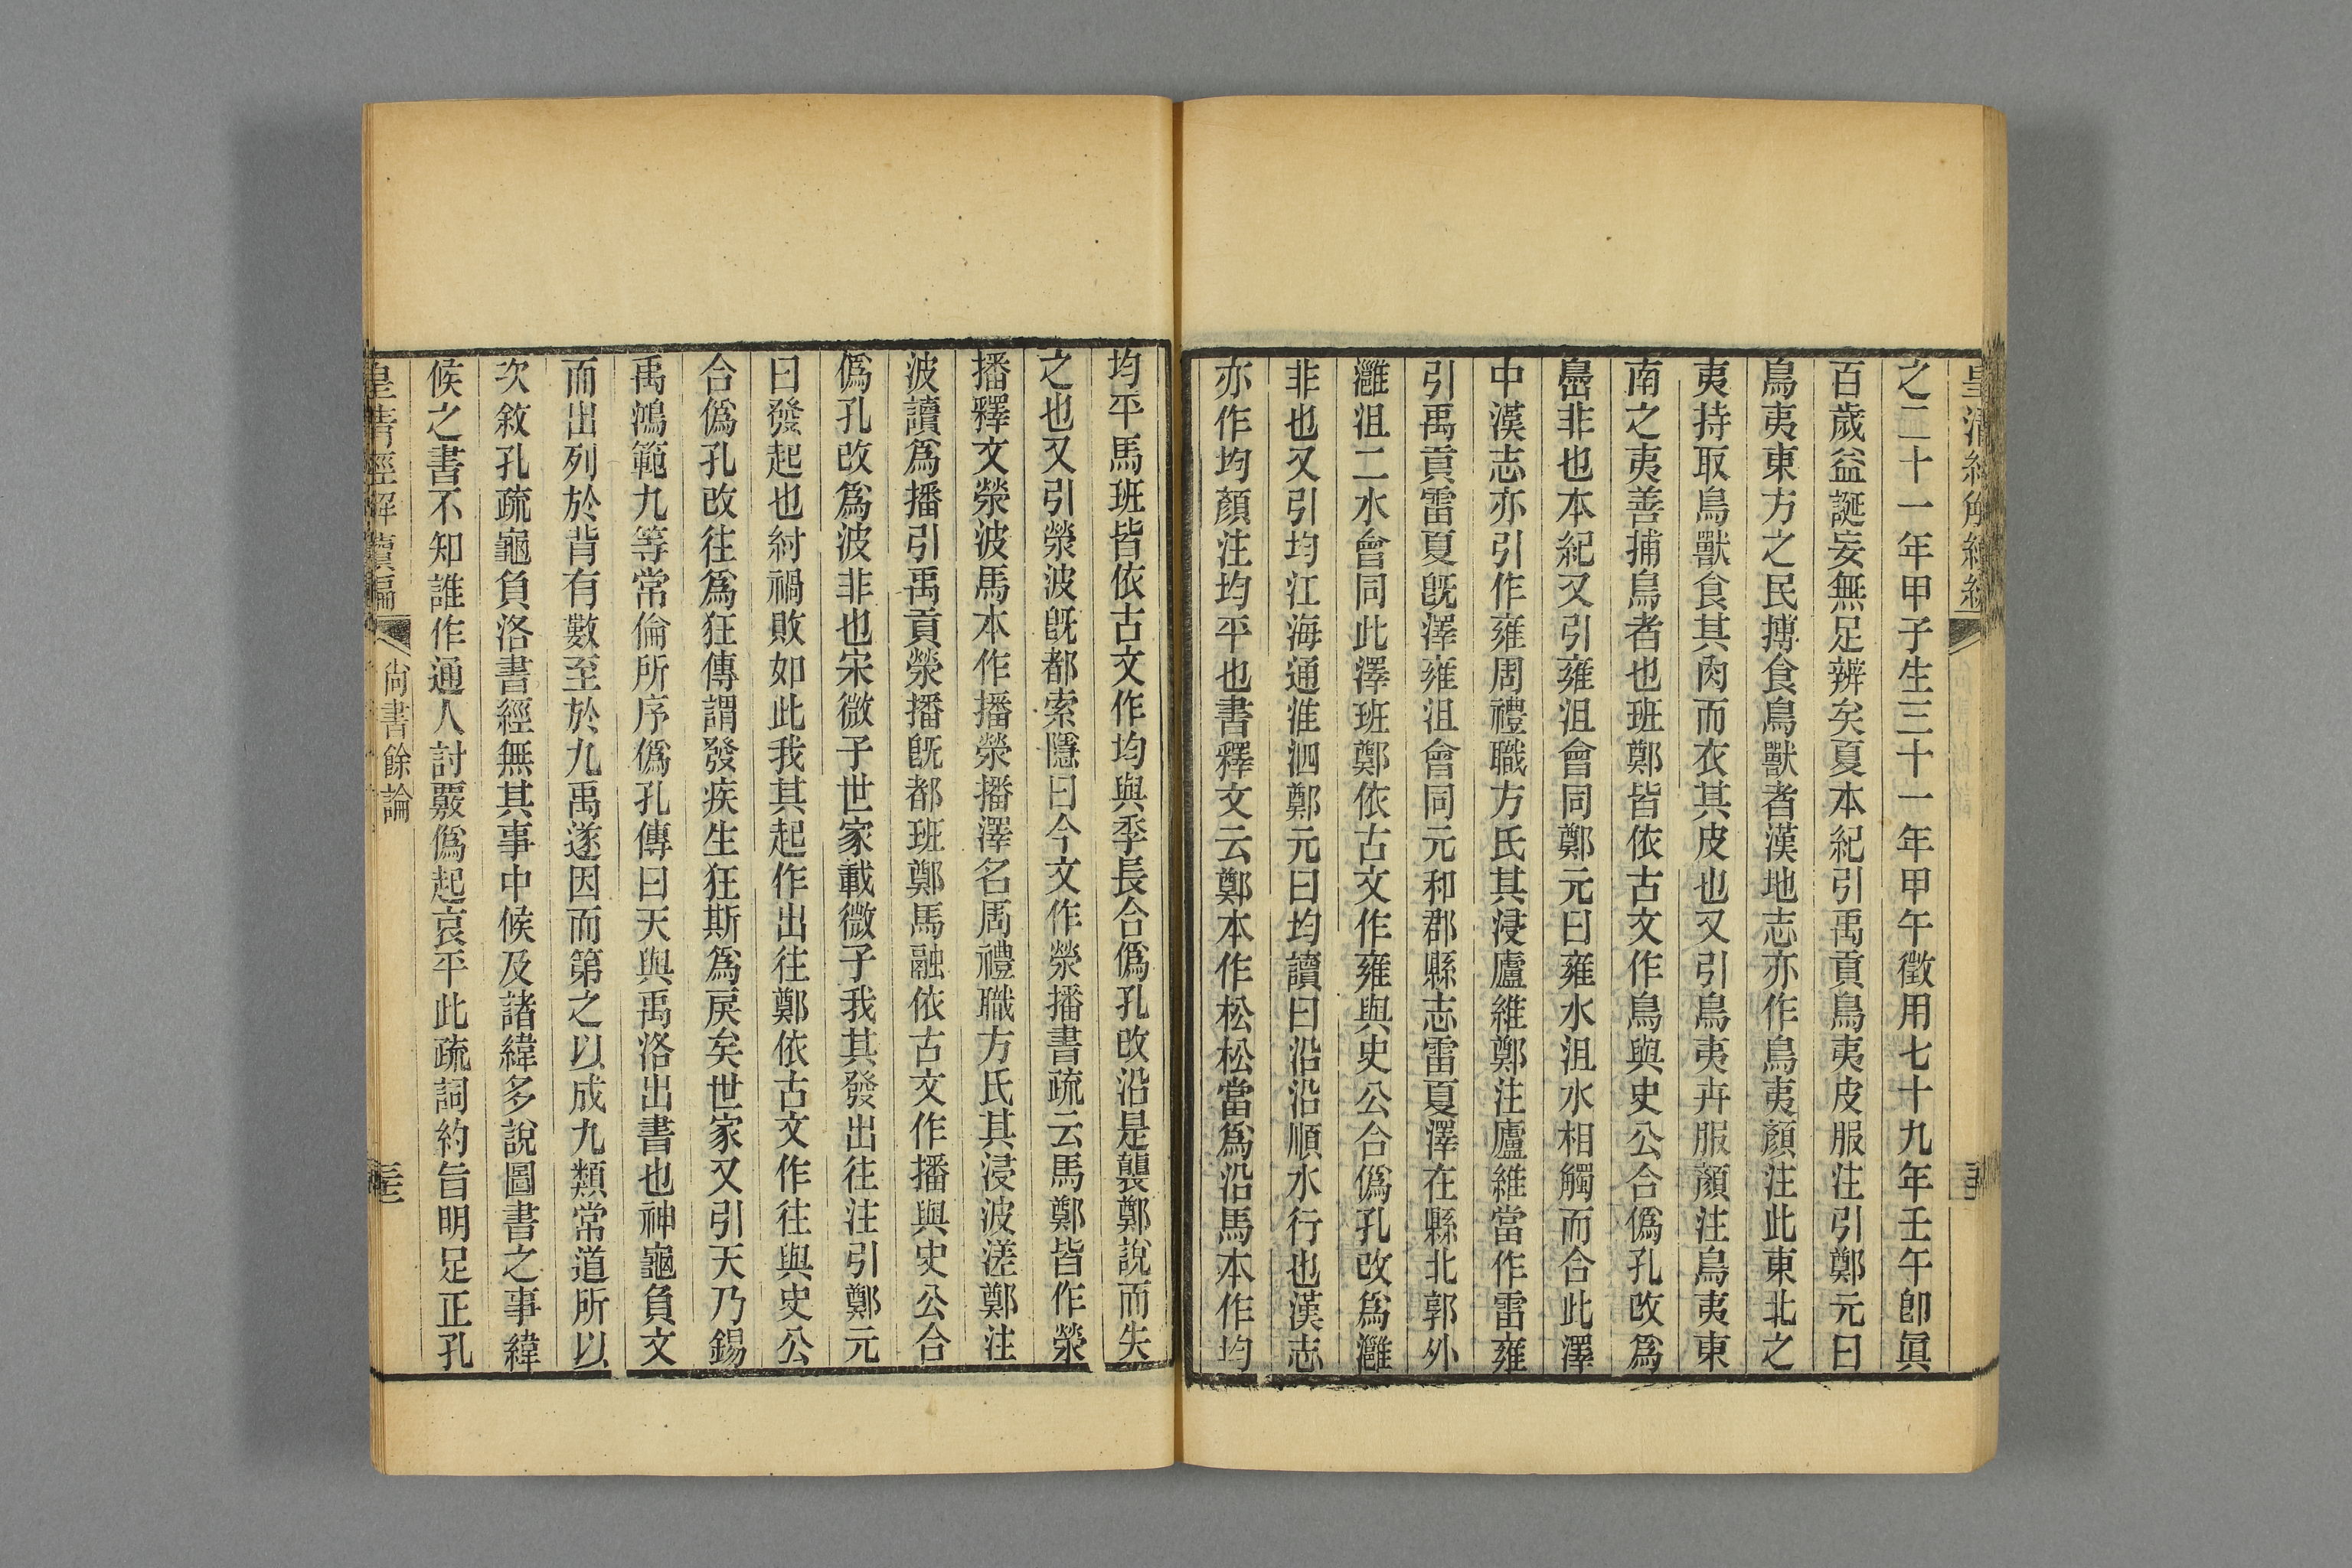 之二十一年甲子生三十一年甲午徵用七十九年壬午卽眞
百歲益誕妄無足辨矣夏本紀引禹貢鳥夷皮服注引鄭元曰
鳥夷東方之民搏食鳥獸者漢地志亦作鳥夷顏注此東北之
夷持取鳥獸食其肉而衣其皮也又引鳥夷卉服顏注鳥夷東
南之夷善捕鳥者也班鄭皆依古文作鳥與史公合僞孔改爲
島非也本紀又引雍沮會同鄭元曰雍水沮水相觸而合此澤
中漢志亦引作雍周禮職方氏其浸廬維鄭注廬維當作雷雍
引禹貢雷夏旣澤雍沮會同元和郡縣志雷夏澤在縣北郭外
灉沮二水會同此澤班鄭依古文作雍與史公合僞孔改爲灉
非也又引均江海通淮泗鄭元曰均讀曰沿沿順水行也漢志
亦作均顏注均平也書釋文云鄭本作松松當爲沿馬本作均
均平馬班皆依古文作均與季長合僞孔改沿是襲鄭說而失
之也又引滎波旣都索隱曰今文作滎播書疏云馬鄭皆作滎
播釋文滎波馬本作播滎播澤名周禮職方氏其浸波溠鄭注
波讀爲播引禹貢滎播旣都班鄭馬融依古文作播與史公合
僞孔改爲波非也宋微子世家載微子我其發出往注引鄭元
曰發起也紂禍敗如此我其起作出往鄭依古文作往與史公
合僞孔改往爲狂傳謂發疾生狂斯爲戾矣世家又引天乃錫
禹鴻範九等常倫所序僞孔傳曰天與禹洛出書也神龜負文
而出列於背有數至於九禹遂因而第之以成九類常道所以
次敘孔疏龜負洛書經無其事中候及諸緯多說圖書之事緯
候之書不知誰作通人討覈僞起哀平此疏詞約旨明足正孔
皇清經解續編
尚書餘論